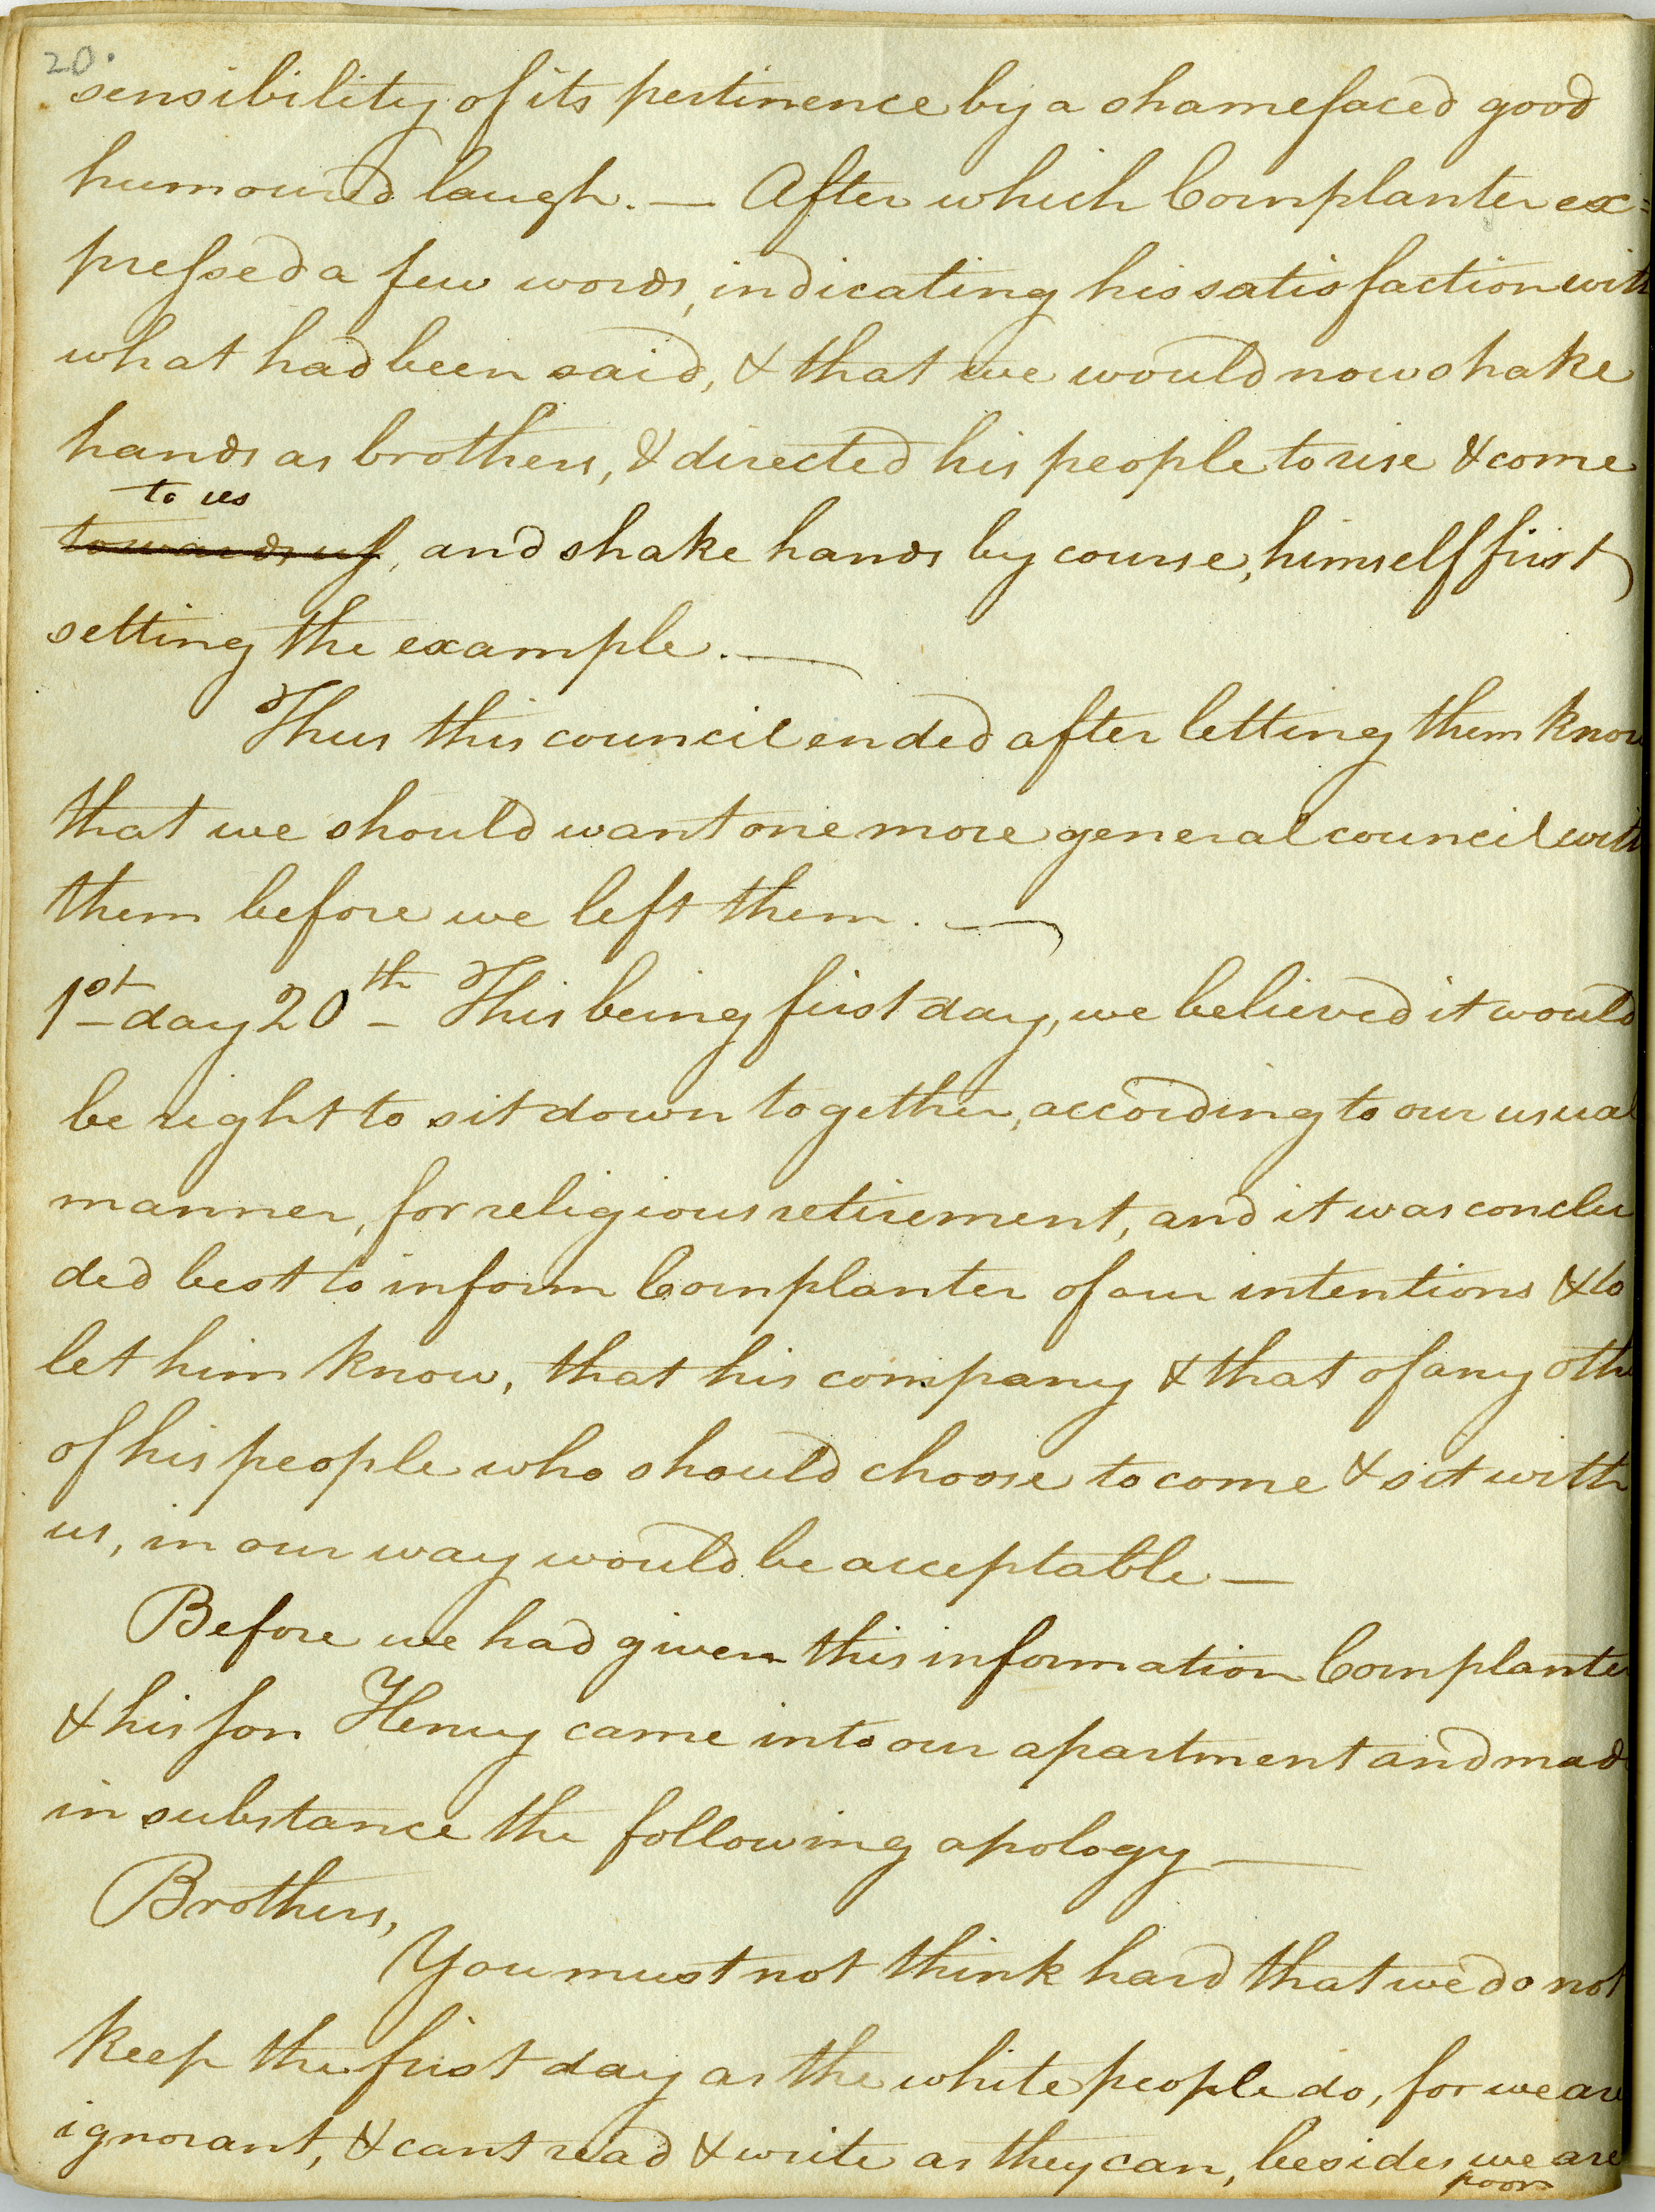 20.
sensibility of its pertinence by a shamefaced good
humoured laugh. — After which Cornplanter ex=
pressed a few words, indicating his satisfaction with
what had been said, & that we would now shake
hands as brothers, & directed his people to rise & come
to us
towards us, and shake hands by course, himself first
setting the example. —
Thus this council ended after letting them know
that we should want one more general council with
them before we left them. —
1st day 20th This being first day, we believed it would
be right to sit down together, according to our usual
manner, for religious retirement, and it was conclu
ded best to inform Cornplanter of our intentions & to
let him know, that his company & that of any othe
of his people who should choose to come & sit with
us, in our way would be acceptable —
Before we had given this information Cornplanter
& his son Henry came into our apartment and made
in substance the following apology —
Brothers,
You must not think hard that we do not
keep the first day as the white people do, for we are
ignorant, & cant read & write as they can, besides we are
poor